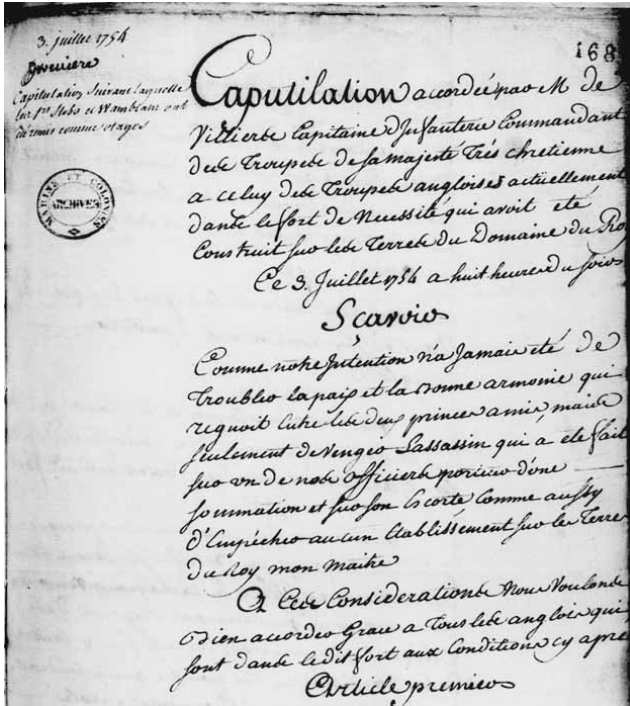 3. juillet 1754
Capitulation Suivant laquelle
les Srs Stobo et Wambram ont
été remis comme otages
MARINE ET COLONIES
ARCHIVES
168
Caputilation accordée par M de
Villierds Capitaine d'Infanterie Commandant
des Troupes de sa majesté Trés chretienne
a celuy des Troupes angloises actuellement
dans le fort de Necessité qui avoit eté
Construit sur les Terres du Domaine du Roy
Ce 3. Juillet 1754 a huit heures du soir
Sçavoir
Comme notre Intention n'a Jamais eté de
Troubler la paix et la Bonne armonie qui
regnoit Entre les deux princes amis, mais
seulement de venger L'assassin qui a été fait
sur un de nos officiers porteur d'une
sommation et sur son Escorte Comme aussy
d'Empêcher aucun Etablissement sur les Terres
du Roy mon maitre
A Ces Considerations Nous Voulons
Bien accorder Grace a Tous les anglois qui
sont dans ledit fort aux Conditions cy apre
Article premier